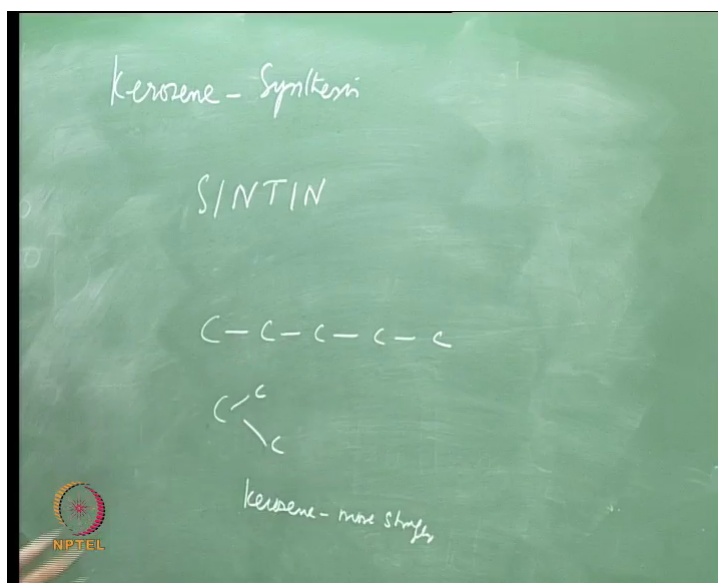 Kerosene - Synthesis
SINTIN
C - C - C - C - C
C C
C
kerosene - more
NPTEL